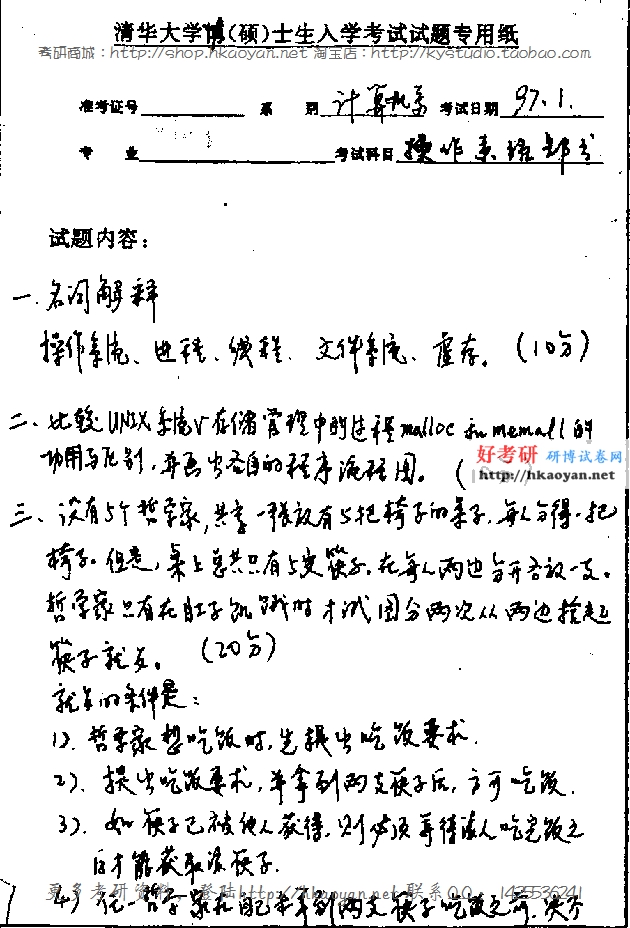 清华大学博(硕)士生入学考试试题专用纸
考研商城：http://shop.hkaoyan.net 淘宝店：http://kystudio.taobao.com
准考证号 系 别 计算机系 考试日期 97.1.
专 业 考试科目 操作系统部分
试题内容：
一、名词解释
操作系统、进程、线程、文件系统、虚存。(10分)
二、比较UNIX系统V存储管理中的过程malloc和memall的
功用与区别，并画出各自的程序流程图。(
好考研 研博试卷网
http://hkaoyan.net
三、设有5个哲学家，共享一张放有5把椅子的桌子，每人分得一把
椅子。但是，桌上总共只有5支筷子，在每人两边分开各放一支。
哲学家只有在肚子饥饿时才试图分两次从两边拾起
筷子就餐。(20分)
就餐的条件是：
1)、哲学家想吃饭时，先提出吃饭要求.
2)、提出吃饭要求，并拿到两支筷子后，方可吃饭.
3)、如筷子已被他人获得，则必须等待该人吃完饭之
后才能获取该筷子.
更多考研资料，登陆http://hkaoyan.net 联系QQ：1435536241
4)、任一哲学家在自己未拿到两支筷子吃饭之前，决不